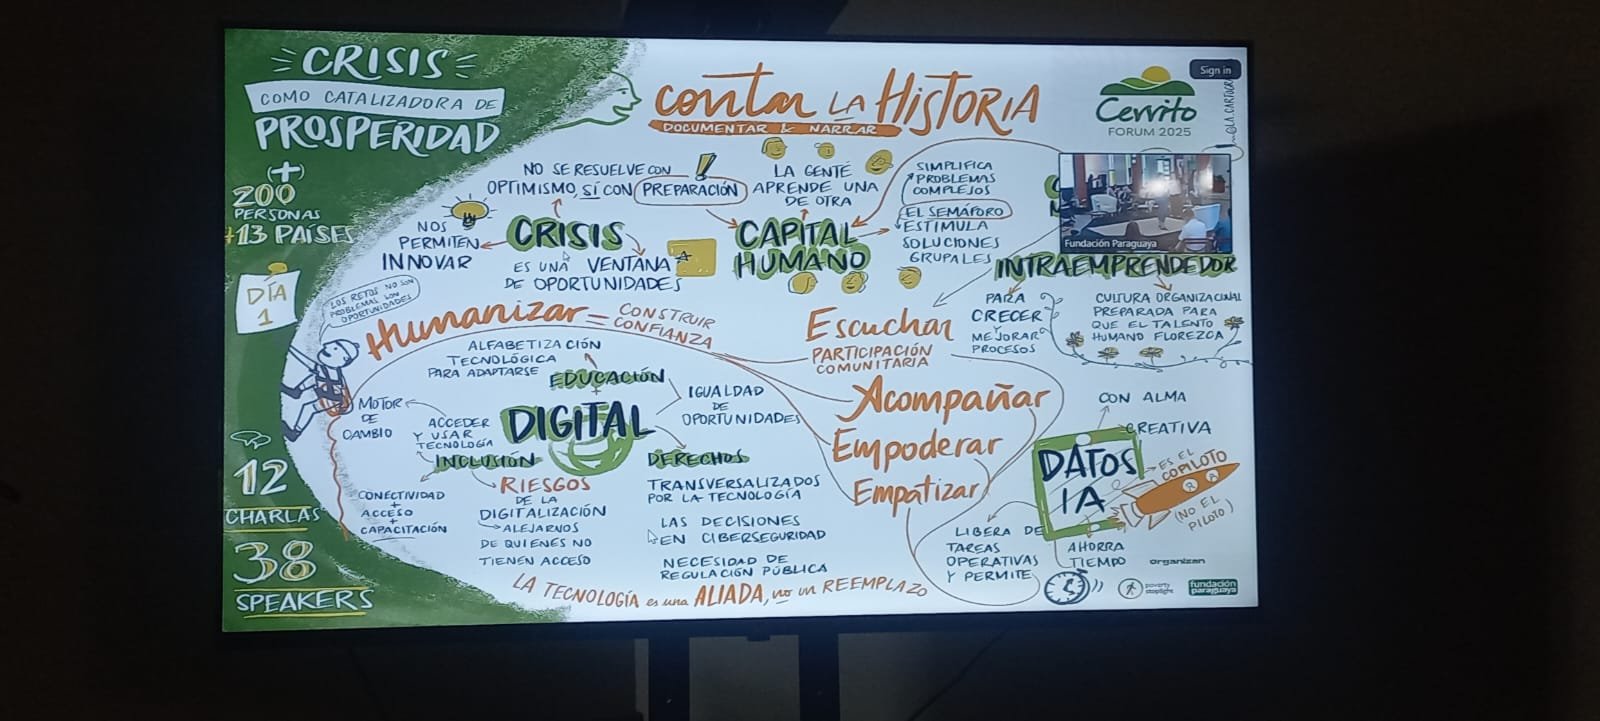 CRISIS
COMO CATALIZADORA DE
PROSPERIDAD
(+)
200
PERSONAS
+13 PAÍSES
DÍA
1
LOS RETOS NO SON
PROBLEMAS SON
OPORTUNIDADES
12
CHARLAS
38
SPEAKERS
contar LA HISTORIA
DOCUMENTAR & NARRAR
Sign in
Cerrito
FORUM 2025
@LA.CARTOGR
NO SE RESUELVE CON
OPTIMISMO, SÍ CON PREPARACIÓN
!
NOS
PERMITEN
INNOVAR
CRISIS
ES UNA VENTANA
DE OPORTUNIDADES
LA GENTE
APRENDE UNA
DE OTRA
CAPITAL
HUMANO
SIMPLIFICA
PROBLEMAS
COMPLEJOS
EL SEMÁFORO
ESTIMULA
SOLUCIONES
GRUPALES
Fundación Paraguaya
INTRAEMPRENDEDOR
PARA
CRECER
Y
MEJORAR
PROCESOS
CULTURA ORGANIZACINAL
PREPARADA PARA
QUE EL TALENTO
HUMANO FLOREZCA
Humanizar = CONSTRUIR
CONFIANZA
Escuchar
PARTICIPACIÓN
COMUNITARIA
Acompañar
Empoderar
Empatizar
ALFABETIZACIÓN
TECNOLÓGICA
PARA ADAPTARSE
EDUCACIÓN
+
DIGITAL
IGUALDAD
DE
OPORTUNIDADES
MOTOR
DE
CAMBIO
ACCEDER
Y USAR
TECNOLOGÍA
INCLUSIÓN
CONECTIVIDAD
+
ACCESO
+
CAPACITACIÓN
RIESGOS
DE LA
DIGITALIZACIÓN
ALEJARNOS
DE QUIENES NO
TIENEN ACCESO
DERECHOS
TRANSVERSALIZADOS
POR LA TECNOLOGÍA
LAS DECISIONES
EN CIBERSEGURIDAD
NECESIDAD DE
REGULACIÓN PÚBLICA
LA TECNOLOGÍA es una ALIADA, no un REEMPLAZO
CON ALMA
CREATIVA
DATOS
IA
ES EL
COPILOTO
(NO EL
PILOTO)
LIBERA DE
TAREAS
OPERATIVAS
Y PERMITE
AHORRA
TIEMPO
organizan
poverty
stoplight
fundación
paraguaya